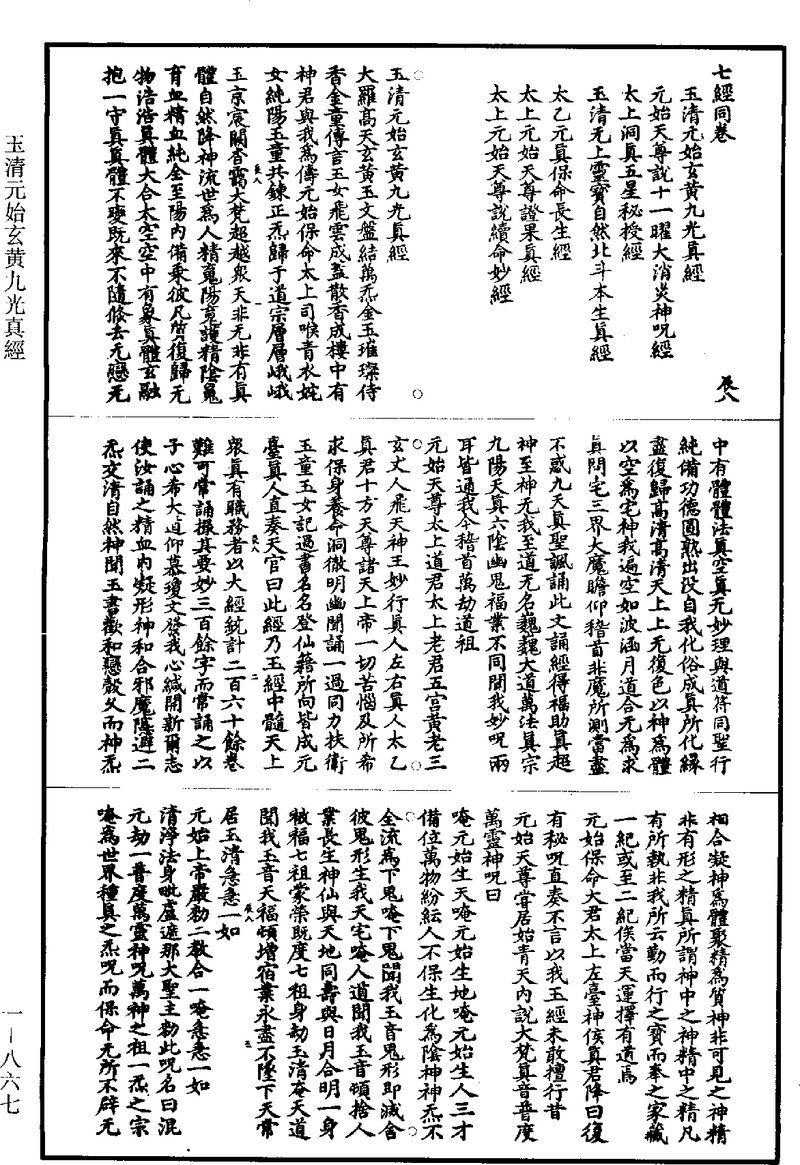 七經同卷
玉清元始玄黃九光真經
元始天尊說十一曜大消災神呪經
太上洞真五星秘授經
玉清无上靈寶自然北斗本生真經
太乙元真保命長生經
太上元始天尊證果真經
太上元始天尊說續命妙經
辰八
玉清元始玄黃九光真經
大羅高天玄黃玉文盤結萬炁金玉璀璨侍
香金童傳言玉女飛雲成蓋散香成樓中有
神君與我為儔元始保命太上司喉青衣姹
女純陽玉童共鍊正炁歸于道宗層層峨峨
玉京宸闕杳靄大梵超越眾天非无非有真
體自然降神流世為人精䰟陽䰟護精陰䰟
育血精血純全至陽內備乘彼凡質復歸无
物浩浩真體大合太空空中有象真體玄融
抱一守真真體不變既來不隨倏去无戀无
中有體體法真空真无妙理與道符同聖行
純備功德圓熟出沒自我化俗成真所化緣
盡復歸高清高清天上上无復色以神為體
以空為宅神我遍空如波涵月道合无為求
真問宅三界大魔瞻仰稽首非魔所測當盡
不惑九天真聖諷誦此文誦經得福助真超
神至神无我至道无名巍巍大道萬法真宗
九陽天真六陰幽鬼福業不同聞我妙呪兩
耳皆通我今稽首萬劫道祖
元始天尊太上道君太上老君五宫黃老三
玄丈人飛天神王妙行真人左右真人太乙
真君十方天尊諸天上帝一切苦惱及所希
求保身養命洞微明幽聞誦一過同力扶衛
玉童玉女記過書名名登仙籍所向皆成元
臺真人直奏天官曰此經乃玉經中髓天上
眾真有職務者以大經統計二百六十餘卷
難可常誦撮其要妙三百餘字而常誦之以
子心希大道仰慕瓊文發我心緘開新爾志
使汝誦之精血內凝形神和合邪魔隱避二
炁交清自然神聞玉書歡和戀殼久而神炁
相合凝神為體聚精為質神非可見之神精
非有形之精真所謂神中之神精中之精凡
有所執非我所云勤而行之寶而奉之家藏
一紀或至二紀俟當天運擇有道焉
元始保命大君太上左臺神侯真君降曰復
有秘呪直奏不言以我玉經未敢擅行昔
元始天尊嘗居始青天內說大梵真音普度
萬靈神呪曰
唵元始生天唵元始生地唵元始生人三才
備位萬物紛紜人不保生化為陰神神炁不
全流為下鬼唵下鬼聞我玉音鬼形即滅舍
彼鬼形生我天宅唵人道聞我玉音頓捨人
業長生神仙與天地同壽與日月合明一身
被福七祖蒙榮既度七祖身劫玉清奄天道
聞我玉音天福頓增宿業永盡不墜下天常
居玉清急急一如
元始上帝嚴勑二教合一唵急急一如
清淨法身毗盧遮那大聖主勑此呪名曰混
元劫一普度萬靈神呪萬神之祖一炁之宗
唵為世界種真之炁呪而保命无所不辟无
玉清元始玄黄九光真經
一—八六七